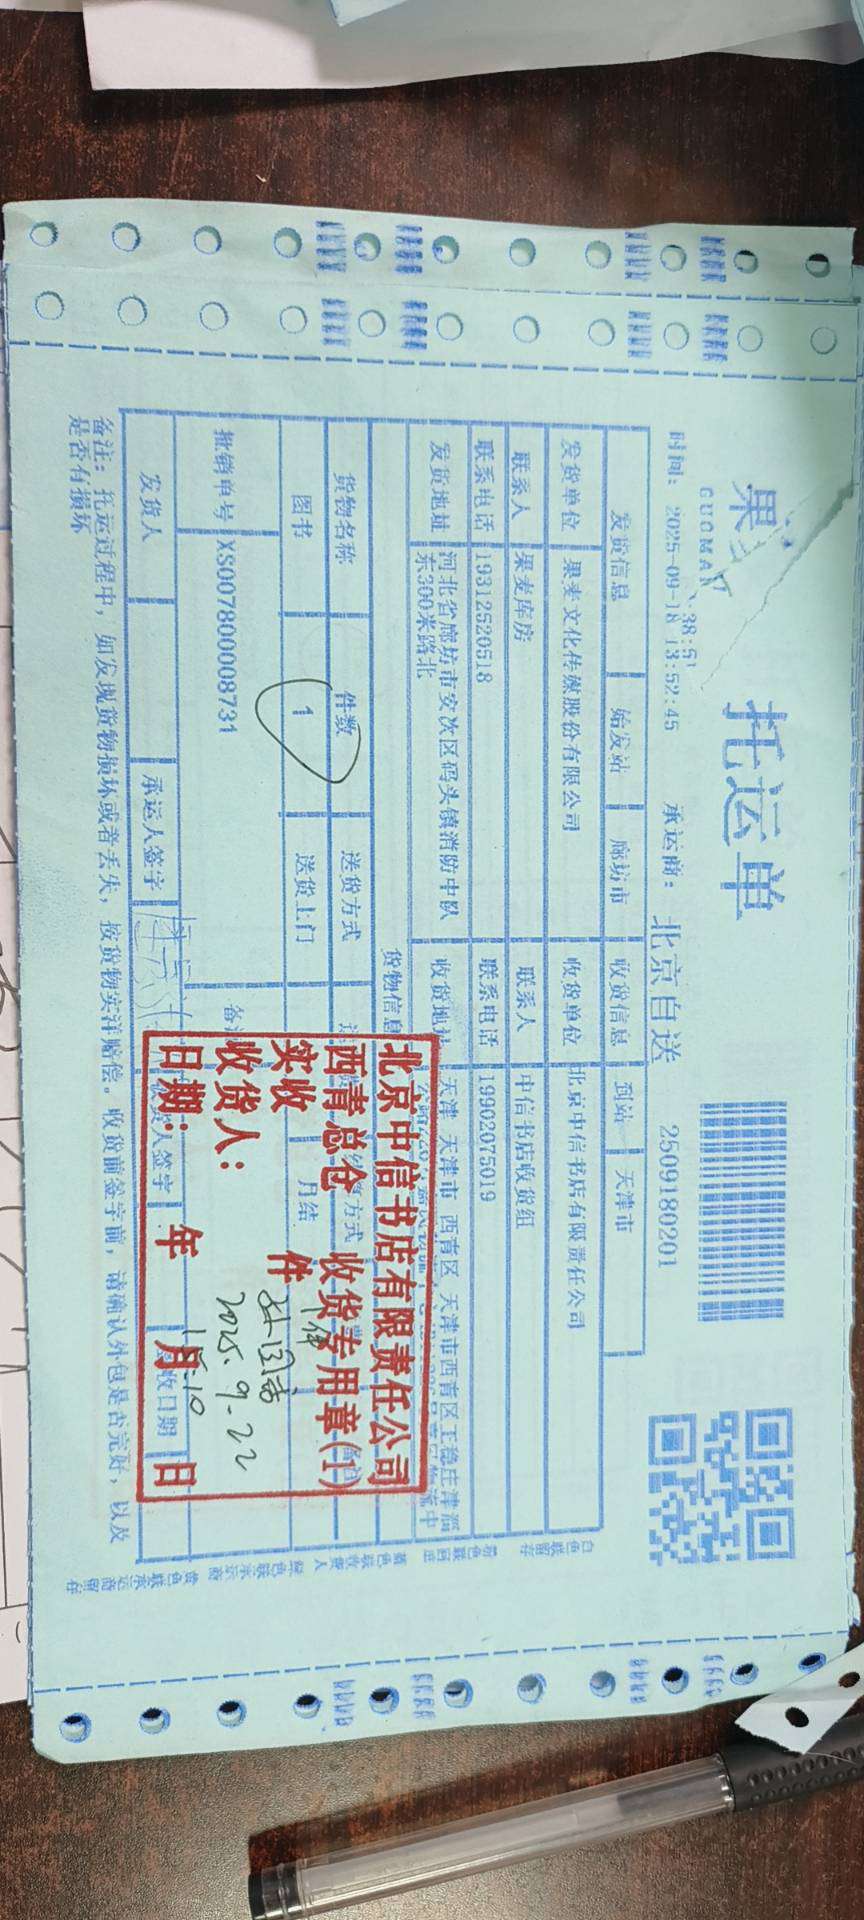 果
托运单
GUOMAI
:38:51
时间: 2025-09-18 13:52:45 承运商: 北京自送 2509180201
发货信息 始发站 廊坊市 收货信息 到站 天津市
发货单位 果麦文化传媒股份有限公司 收货单位 北京中信书店有限责任公司
联系人 果麦库房 联系人 中信书店收货组
联系电话 19312520518 联系电话 19902075019
发货地址 河北省廊坊市安次区码头镇消防中队东300米路北 收货地址 天津 天津市 西青区 天津市西青区王稳庄津淄
货物信息
货物名称 件数 送货方式 方式
图书 1 送货上门 月结
批销单号 XS007800008731 备注
发货人 承运人签字 收货人签字 签收日期
备注: 托运过程中, 如发现货物损坏或者丢失, 按货物实洋赔偿。收货前签字前, 请确认外包是否完好, 以及
是否有损坏
白色联留存
粉色联回迁
蓝色联收货人
绿色联承运商
黄色联承运商留存
北京中信书店有限责任公司
西青总仓 收货专用章(1)
实收 件
收货人:
日期: 年 月 日
1件
2025.9.22
15:10